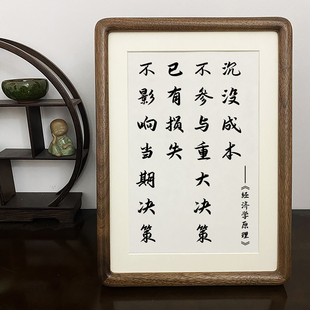 沉没成本
不参与重大决策
已有损失
不影响当期决策
——《经济学原理》